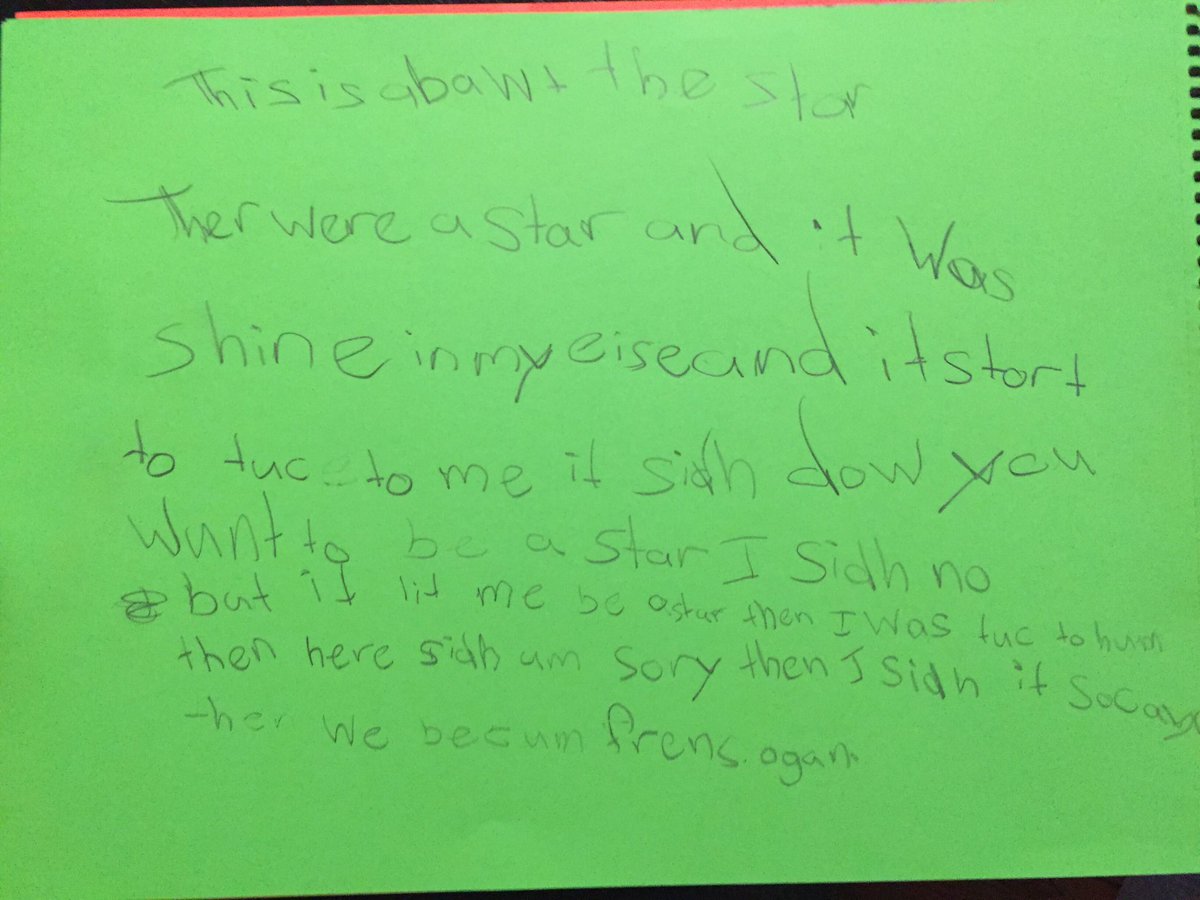 This is abawt the star
Ther were a star and it was
shine in my eise and it stort
to tuc to me it sidh dow you
wunt to be a star I sidh no
but it lit me be a star then I was tuc to hum
then here sidh um sory then I sidh it socay
ther we becum frens. ogan.